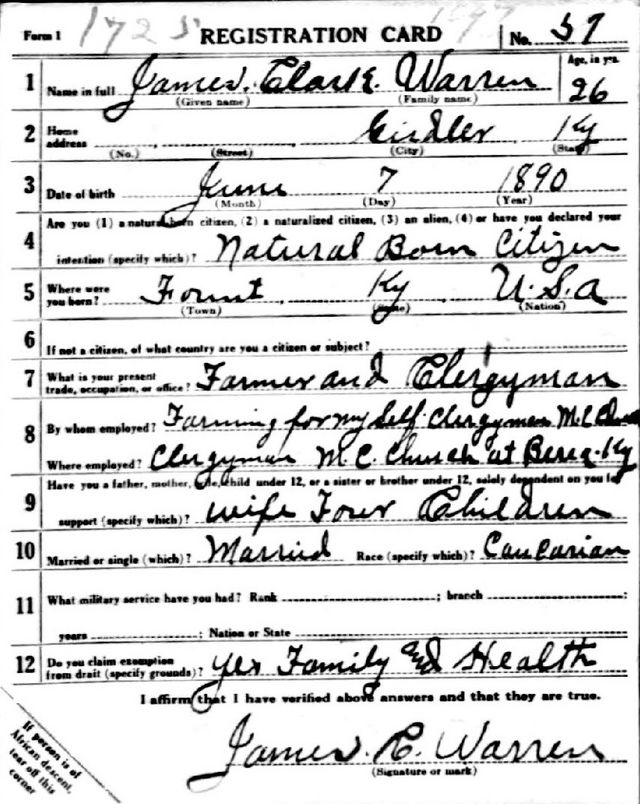 Form 1 1725 REGISTRATION CARD No. 57
1 Name in full James. Clark. Warren Age, in yrs. 26
(Given name) (Family name)
2 Home address Girdler Ky
(No.) (Street) (City) (State)
3 Date of birth June 7 1890
(Month) (Day) (Year)
4 Are you (1) a natural born citizen, (2) a naturalized citizen, (3) an alien, (4) or have you declared your
intention (specify which)? Natural Born Citizen
5 Where were you born? Fount, Ky U.S.A
(Town) (State) (Nation)
6 If not a citizen, of what country are you a citizen or subject?
7 What is your present trade, occupation, or office? Farmer and Clergyman
8 By whom employed? Farming for my Self. Clergyman M.C Church
Where employed? Clergyman M.C. Church at Berea-Ky
9 Have you a father, mother, wife, child under 12, or a sister or brother under 12, solely dependent on you for
support (specify which)? wife Four Children
10 Married or single (which)? Married Race (specify which)? Caucasian
11 What military service have you had? Rank ; branch
years ; Nation or State
12 Do you claim exemption from draft (specify grounds)? yes Family and Health
I affirm that I have verified above answers and that they are true.
James. C. Warren
(Signature or mark)
If person is of
African descent,
tear off this
corner